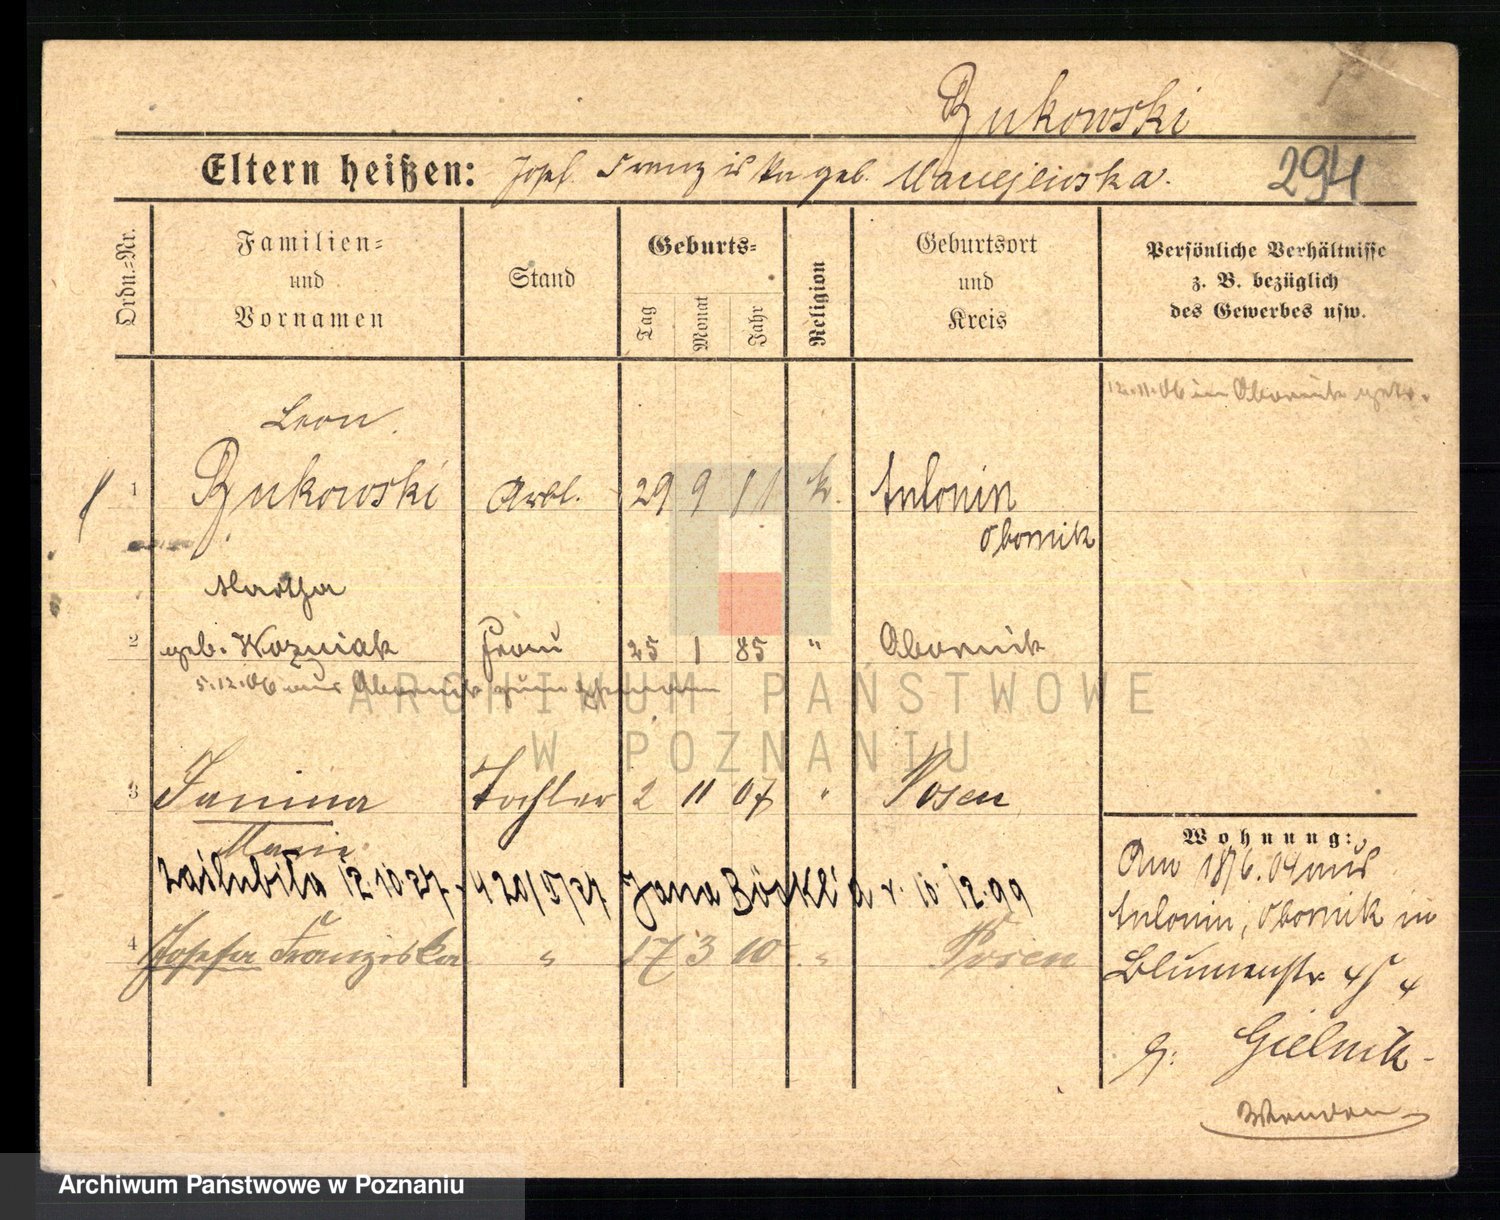 Bukowski
Eltern heißen: Josef Franziska geb. Maciejewska.
294
Ordn.-Nr.
Familien-
und
Vornamen
Stand
Geburts-
Tag
Monat
Jahr
Religion
Geburtsort
und
Kreis
Persönliche Verhältnisse
z. B. bezüglich
des Gewerbes usw.
12.11.06 in Obornik getr.
Leon
1 Bukowski Arbt. 29 9 81 k. Antonin
Obornik
Martha
2 geb. Wozniak Frau 25 1 85 " Obornik
5.12.06 aus Obornik zum Ehemann
ARCHIWUM PAŃSTWOWE
W POZNANIU
3 Janina Tochter 2 11 07 " Posen
Marie
12.10.27 Jana 10.12.99
4 Josefa Franziska " 17 3 10 " Posen
Wohnung:
Am 18/6.04 aus
Antonin, Obornik in
Blumenstr 4
b. Gielnik
Wenden
Archiwum Państwowe w Poznaniu